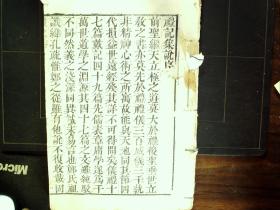 禮記集說序
前聖繼天立極之道莫大於禮後聖垂世立
教之書亦莫先於禮禮儀三百威儀三千孰
非精神心術之所寓故能與天地同其節四
代損益世遠經殘其詳不可得聞矣儀禮十
七篇戴記四十九篇先儒表章庸學遂為千
萬世道學之淵源其四十七篇之文雖純駁
不同然義之淺深同異誠未易言也鄭氏祖
讖緯孔疏惟鄭之從雖有他說不復收載固
Micro